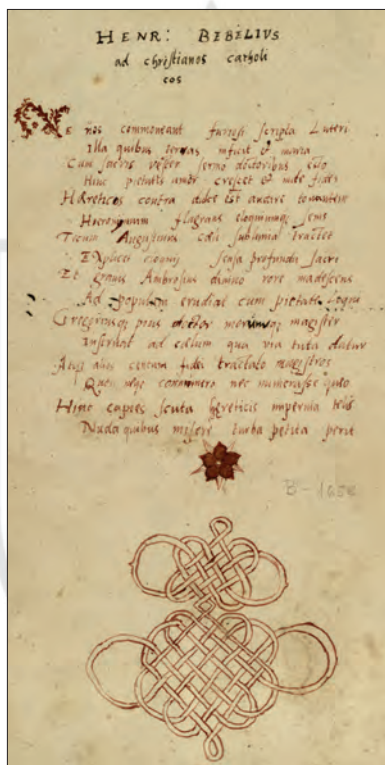 HENR: BEBELIVS
ad christianos catholi
cos
Ne nos commoveant furiosi scripta Luteri
Illa quibus terras inficit et maria
Cum sacris vester sermo doctoribus esto
Hinc pietatis amor crescet et
Hæreticos contra dulce est audire tonantem
Hieronymum flagrans eloquiumque
Augustinus cœli sublimia tractet
Explicet sensa profunda sacri
Et gravis Ambrosius divino rore madescens
Ad populum erudiat cum pietate loqui
Gregoriusque pius doctor morumque magister
Instruat ad cælum qua via tuta datur
Atque alios centum fidei tractato magistros
Quos neque connumero nec numerasse queo
Hinc capies scuta hæreticis impervia telis
Nuda quibus misere turba petita perit
B-1658